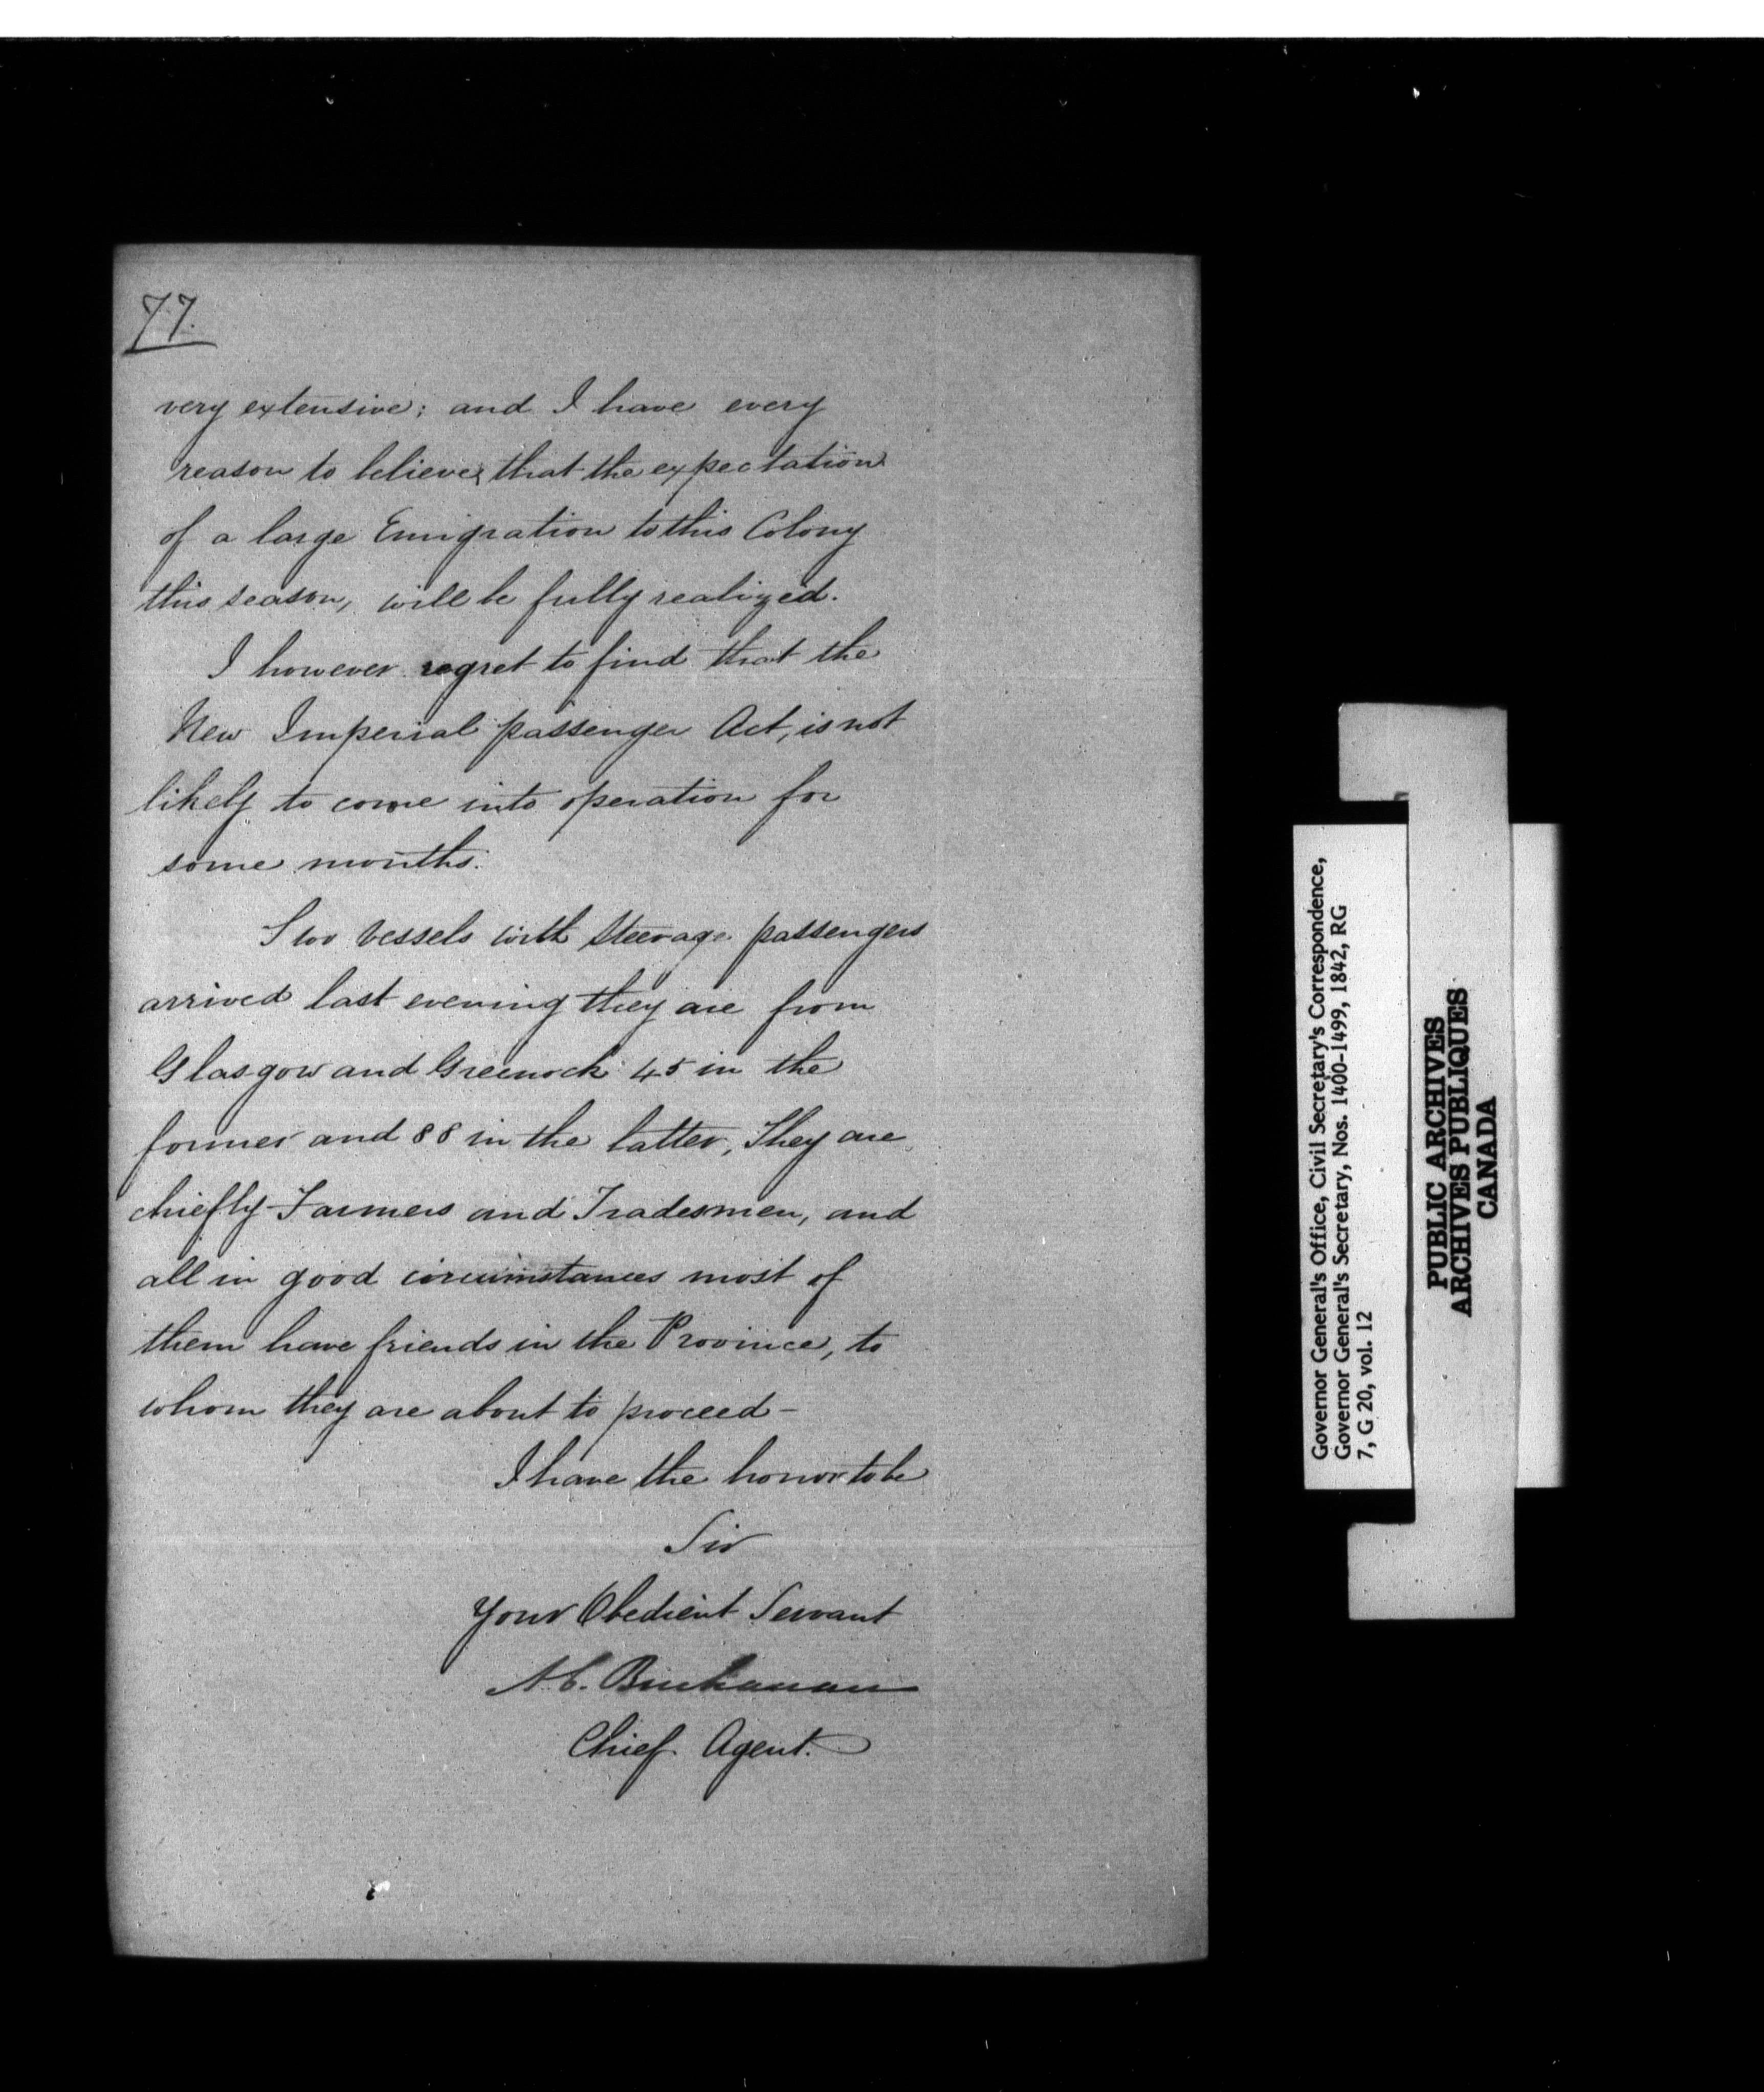 77.
very extensive; and I have every
reason to believe, that the expectation
of a large Emigration to this Colony
this season, will be fully realized.
I however regret to find that the
New Imperial passenger Act, is not
likely to come into operation for
some months.
Two Vessels with Steerage passengers
arrived last evening they are from
Glasgow and Greenock 45 in the
former and 88 in the latter, They are
chiefly Farmers and Tradesmen, and
all in good circumstances most of
them have friends in the Province, to
whom they are about to proceed -
I have the honor to be
Sir
Your Obedient Servant
A.C. Buchanan
Chief Agent.
Governor General's Office, Civil Secretary's Correspondence,
Governor General's Secretary, Nos. 1400-1499, 1842, RG
7, G 20, vol. 12
PUBLIC ARCHIVES
ARCHIVES PUBLIQUES
CANADA